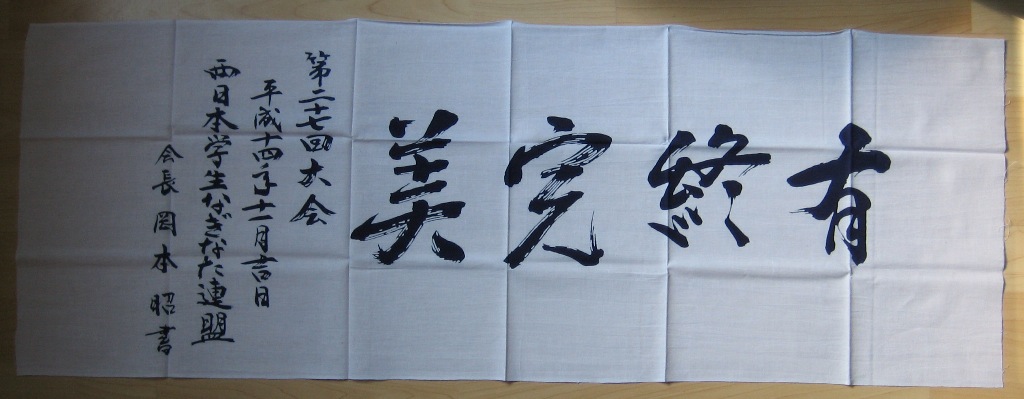 有終完美
第二十七回大会
平成十四年十一月吉日
西日本学生なぎなた連盟
会長 岡本 昭書